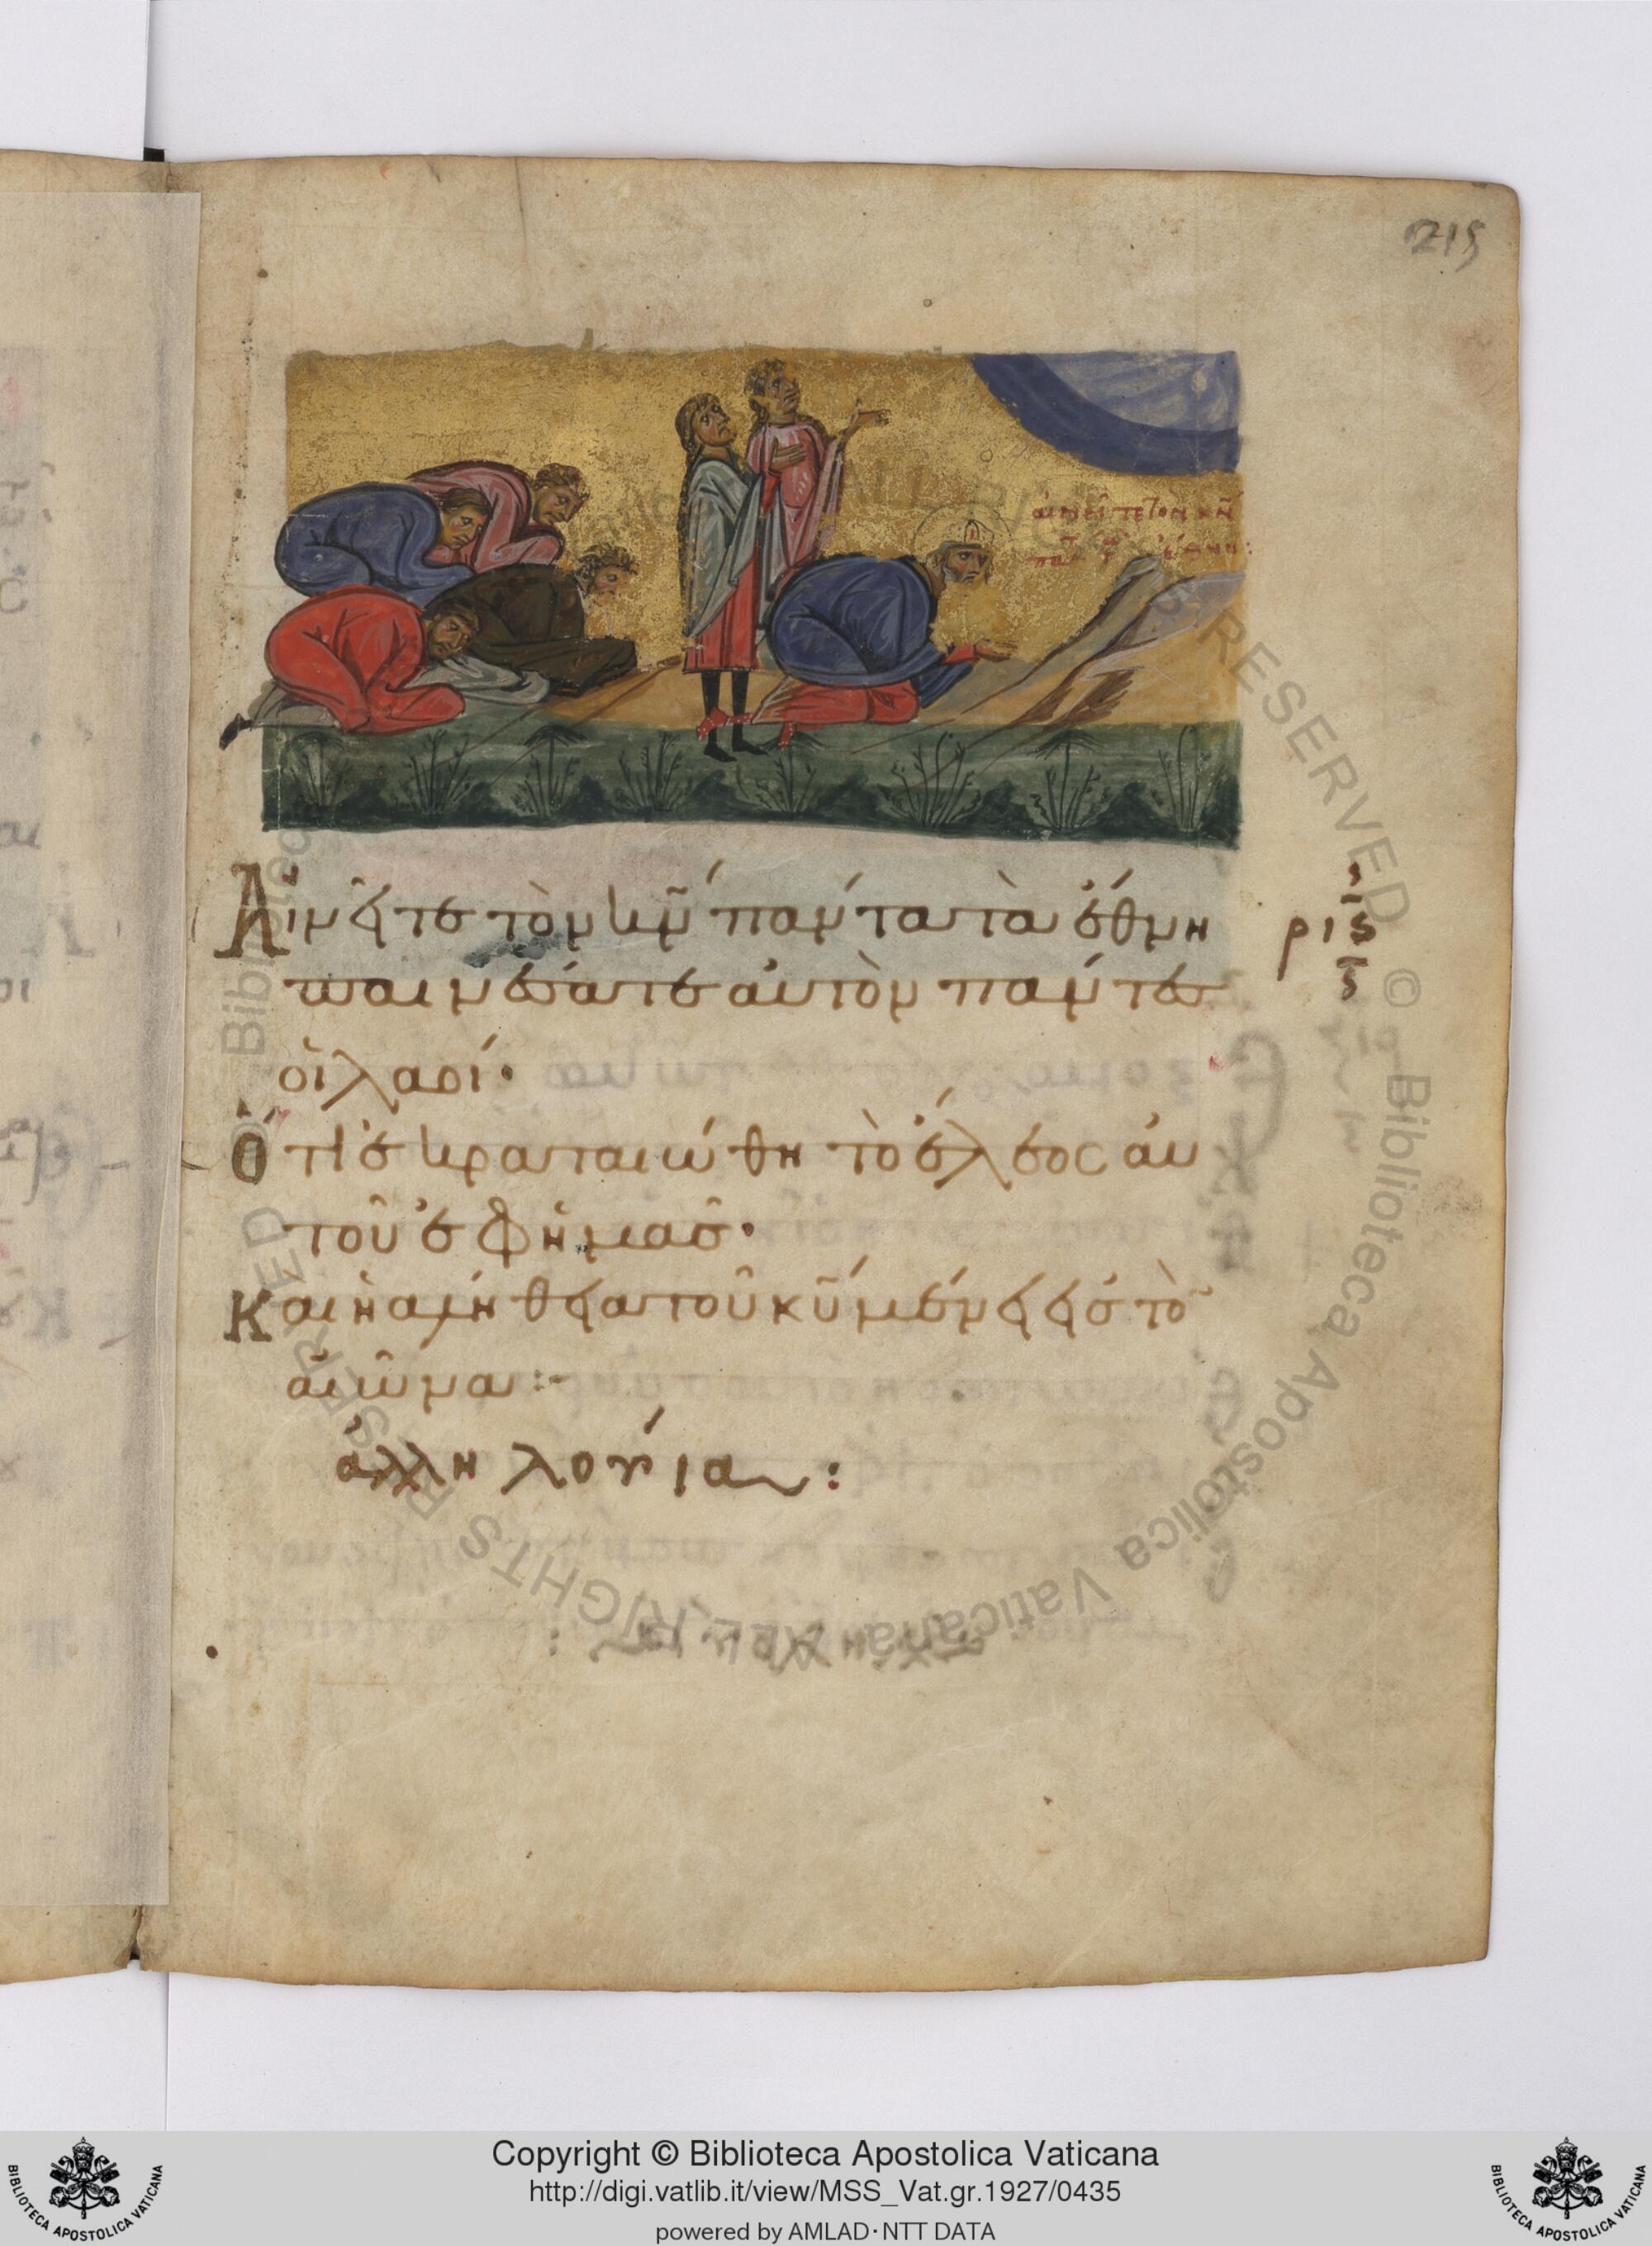 215
αἰνεῖτε τὸν κν
πατ τα ἔθνη:
Αἰνεῖτε τὸν κν πάντα τὰ ἔθνη
ἐπαινέσατε αὐτὸν πάντες
οἱ λαοί·
Ὅτι ἐκραταιώθη τὸ ἔλεος αὐ
τοῦ ἐφ ἡμᾶς·
Καὶ ἡ ἀλήθεια τοῦ κυ μένει εἰς τὸ
αἰῶνα:
ἀλληλούϊα:
ριϛ
© Biblioteca Apostolica Vaticana ALL RIGHTS RESERVED
Copyright © Biblioteca Apostolica Vaticana
http://digi.vatlib.it/view/MSS_Vat.gr.1927/0435
powered by AMLAD·NTT DATA
BIBLIOTECA APOSTOLICA VATICANA
BIBLIOTECA APOSTOLICA VATICANA